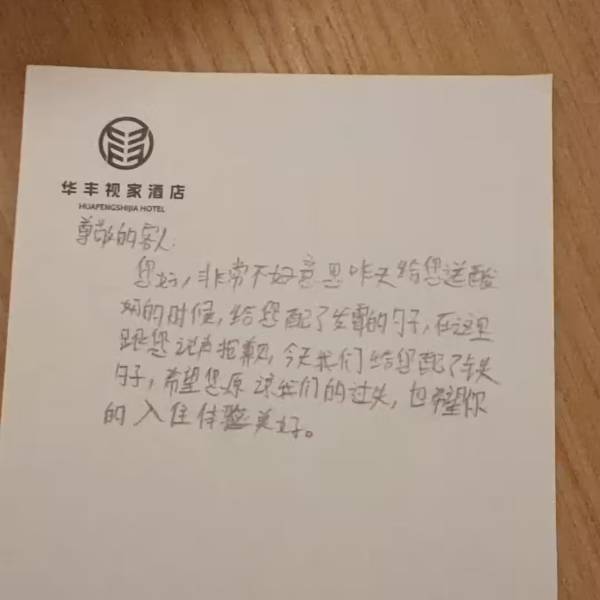 华丰视家酒店
HUAFENGSHIJIA HOTEL
尊敬的客人:
您好,非常不好意思昨天给您送酸
奶的时候,给您配了发霉的勺子,在这里
跟您说声抱歉,今天我们给您配了铁
勺子,希望您原谅我们的过失,也希望你
的入住体验美好。